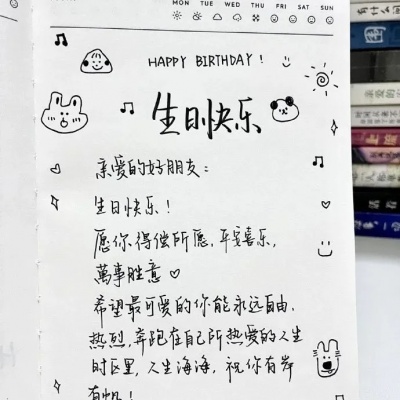 MON TUE WED THU FRI SAT SUN
HAPPY BIRTHDAY!
生日快乐
亲爱的好朋友:
生日快乐!
愿你得偿所愿,平安喜乐,
萬事胜意
希望最可爱的你能永远自由、
热烈,奔跑在自己所热爱的人生
时区里,人生海海,祝你有岸
有帆!